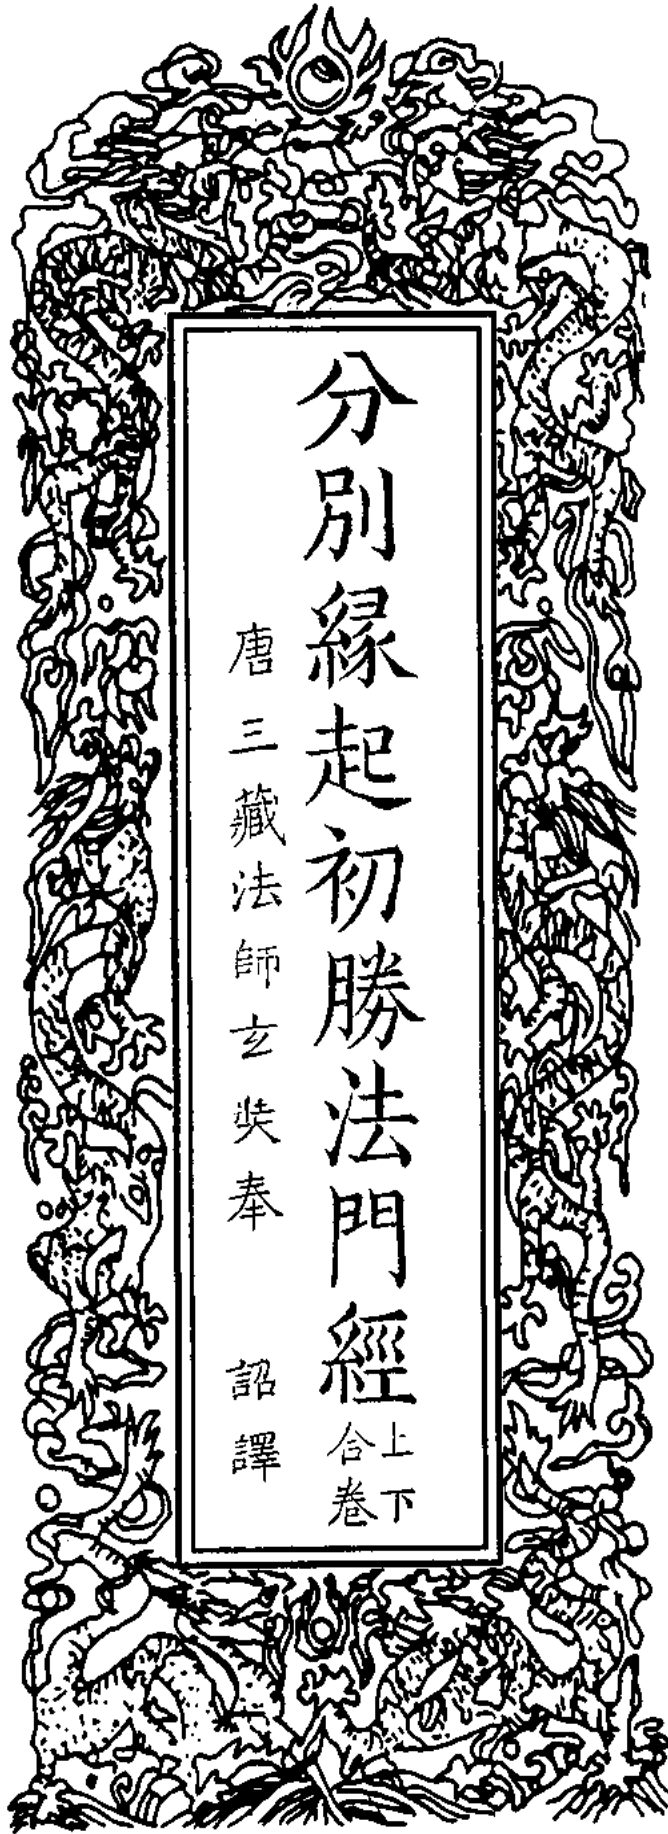 分別緣起初勝法門經
上下
合卷
唐三藏法師玄奘奉　詔譯